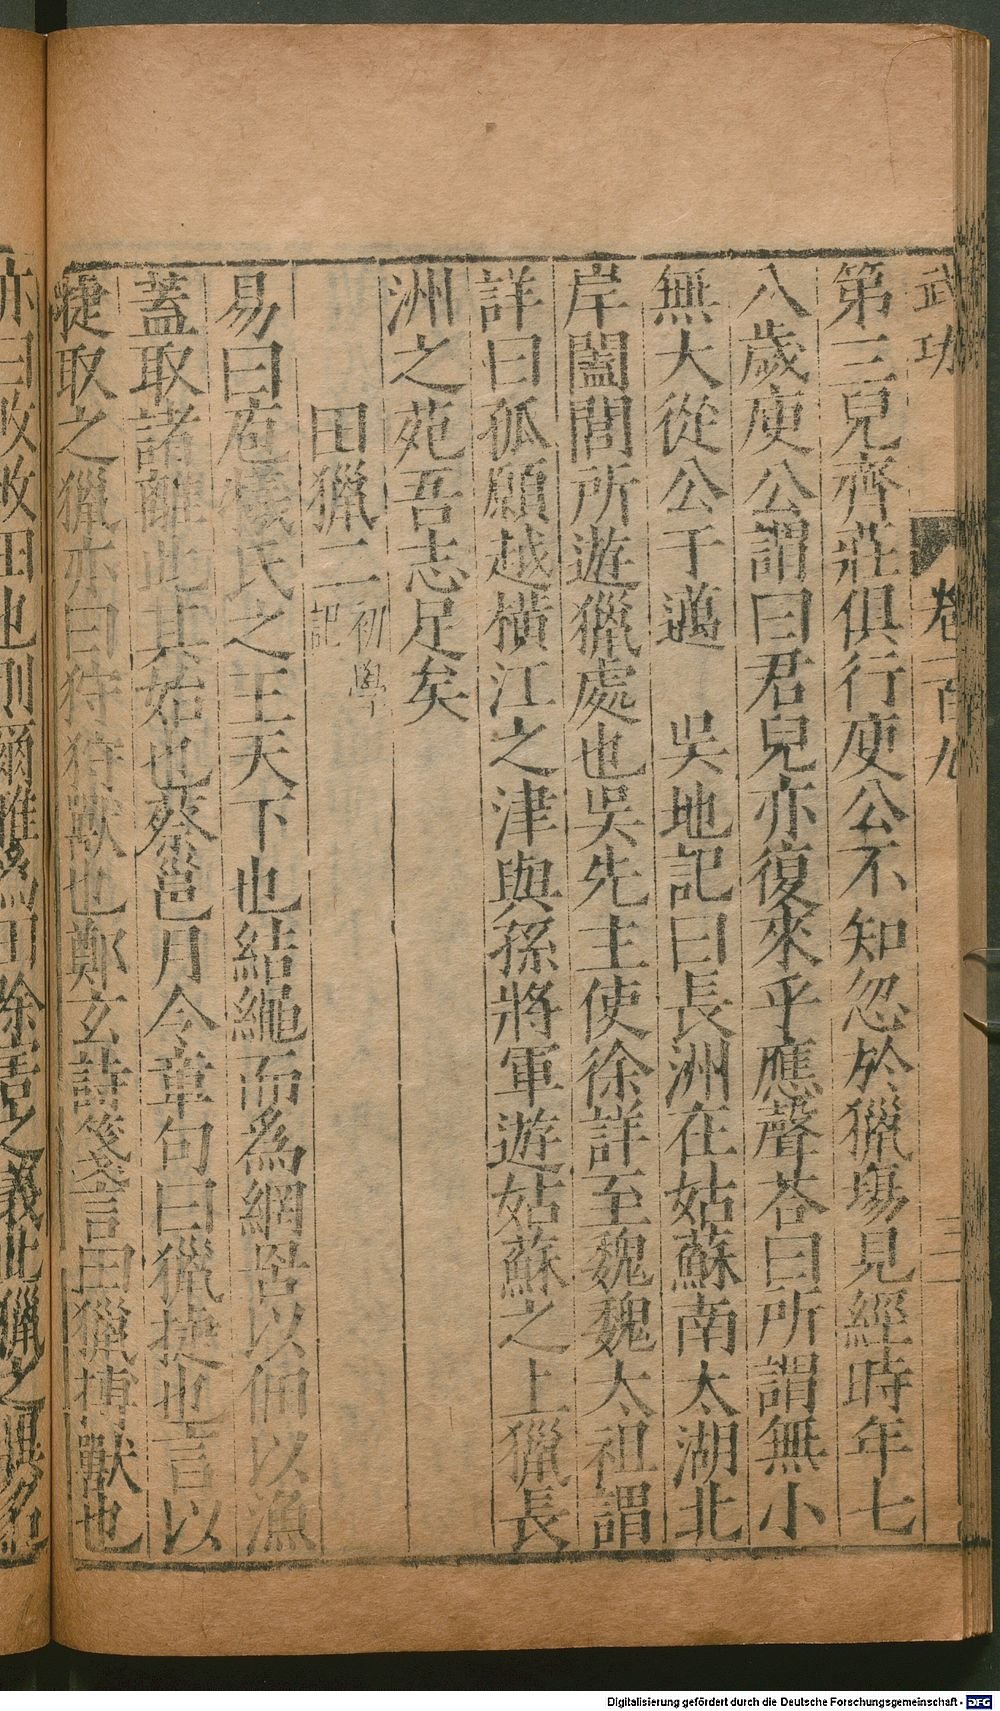 武功
卷一百九
三
第三兒齊莊俱行庾公不知忽於獵塲見經時年七
八歲庾公謂曰君兒亦復來乎應聲荅曰所謂無小
無大從公于邁　吳地記曰長洲在姑蘇南太湖北
岸闔閭所遊獵處也吳先主使徐詳至魏魏太祖謂
詳曰孤願越橫江之津與孫將軍遊姑蘇之上獵長
洲之苑吾志足矣
田獵二初學記
易曰庖犧氏之王天下也結繩而為網罟以佃以漁
蓋取諸離此其始也蔡邕月令章句曰獵捷也言以
捷取之獵亦曰狩狩獸也鄭玄詩箋言田獵搏獸也
亦曰畋畋田也則爾雅為田除害之義此獵之異名
Digitalisierung gefördert durch die Deutsche Forschungsgemeinschaft - DFG